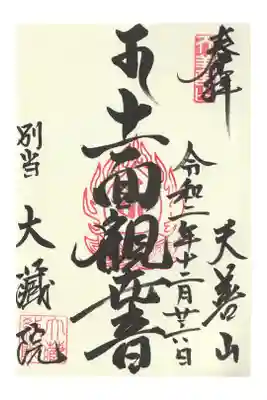 奉拝
天善山
令和二年十二月廿六日
十一面觀世音
別当 大藏院